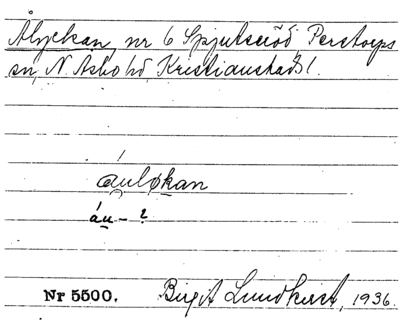 Ålyckan, nr 6 Spjutseröd, Perstorps
sn, N. Åsbo hd, Kristianstads l.
áulókan
áu- ?
Nr 5500. Birgit Lundkvist, 1936.